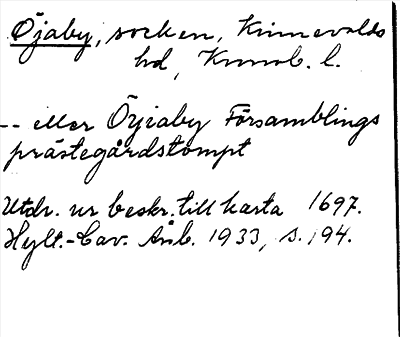 Öjaby, socken, Kinnevalds
hd, Kronob. l.
-- eller Öyiaby Församblings
prästegårdstompt
Utdr. ur beskr. till karta 1697.
Hylt.-Cav. Årsb. 1933, s. 194.